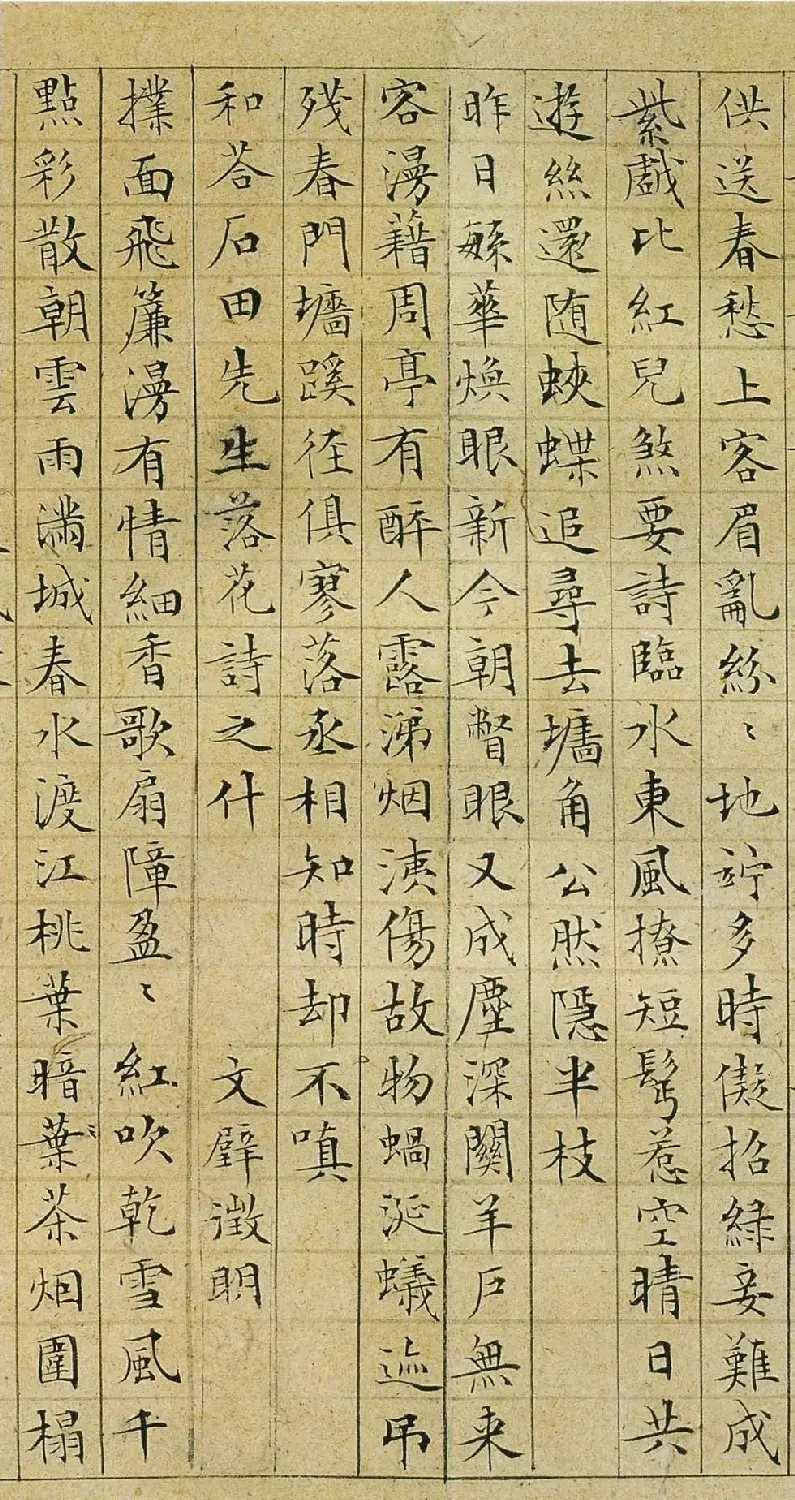 供送春愁上客眉亂紛〻地竚多時儗招緑妾難成
紫戲比紅兒煞要詩臨水東風撩短鬢惹空晴日共
遊絲還随蛺蝶追尋去墻角公然隱半枝
昨日繁華煥眼新今朝瞥眼又成塵深關羊戶無来
客漫藉周亭有醉人露涕烟洟傷故物蝸涎蟻迹吊
殘春門墻蹊徑俱寥落丞相知時却不嗔
和荅石田先生落花詩之什　文壁徵明
撲面飛簾漫有情細香歌扇障盈〻　紅吹乾雪風千
點彩散朝雲雨满城春水渡江桃葉暗葉茶烟圍榻